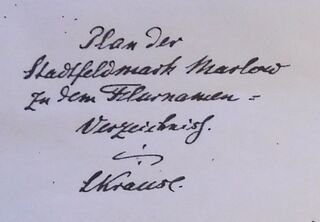 Plan der
Stadtfeldmark Marlow
zu dem Flurnamen=
Verzeichniß.
LKrause.